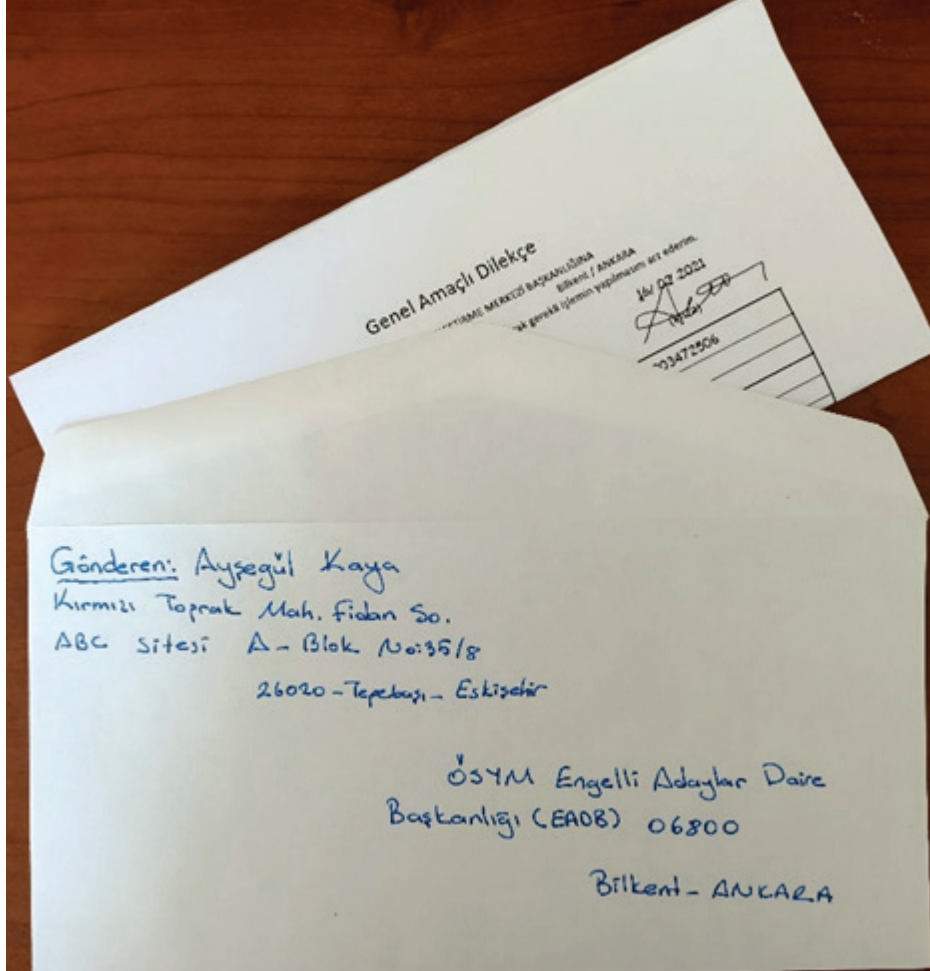 Genel Amaçlı Dilekçe
MERKEZİ BAŞKANLIĞINA
Bilkent / ANKARA
gerekli işlemin yapılmasını arz ederim.
16/07 2021
(imza)
03472506
Gönderen: Ayşegül Kaya
Kırmızı Toprak Mah. Fidan So.
ABC Sitesi A-Blok No:35/8
26020-Tepebaşı-Eskişehir
ÖSYM Engelli Adaylar Daire
Başkanlığı (EADB) 06800
Bilkent-ANKARA